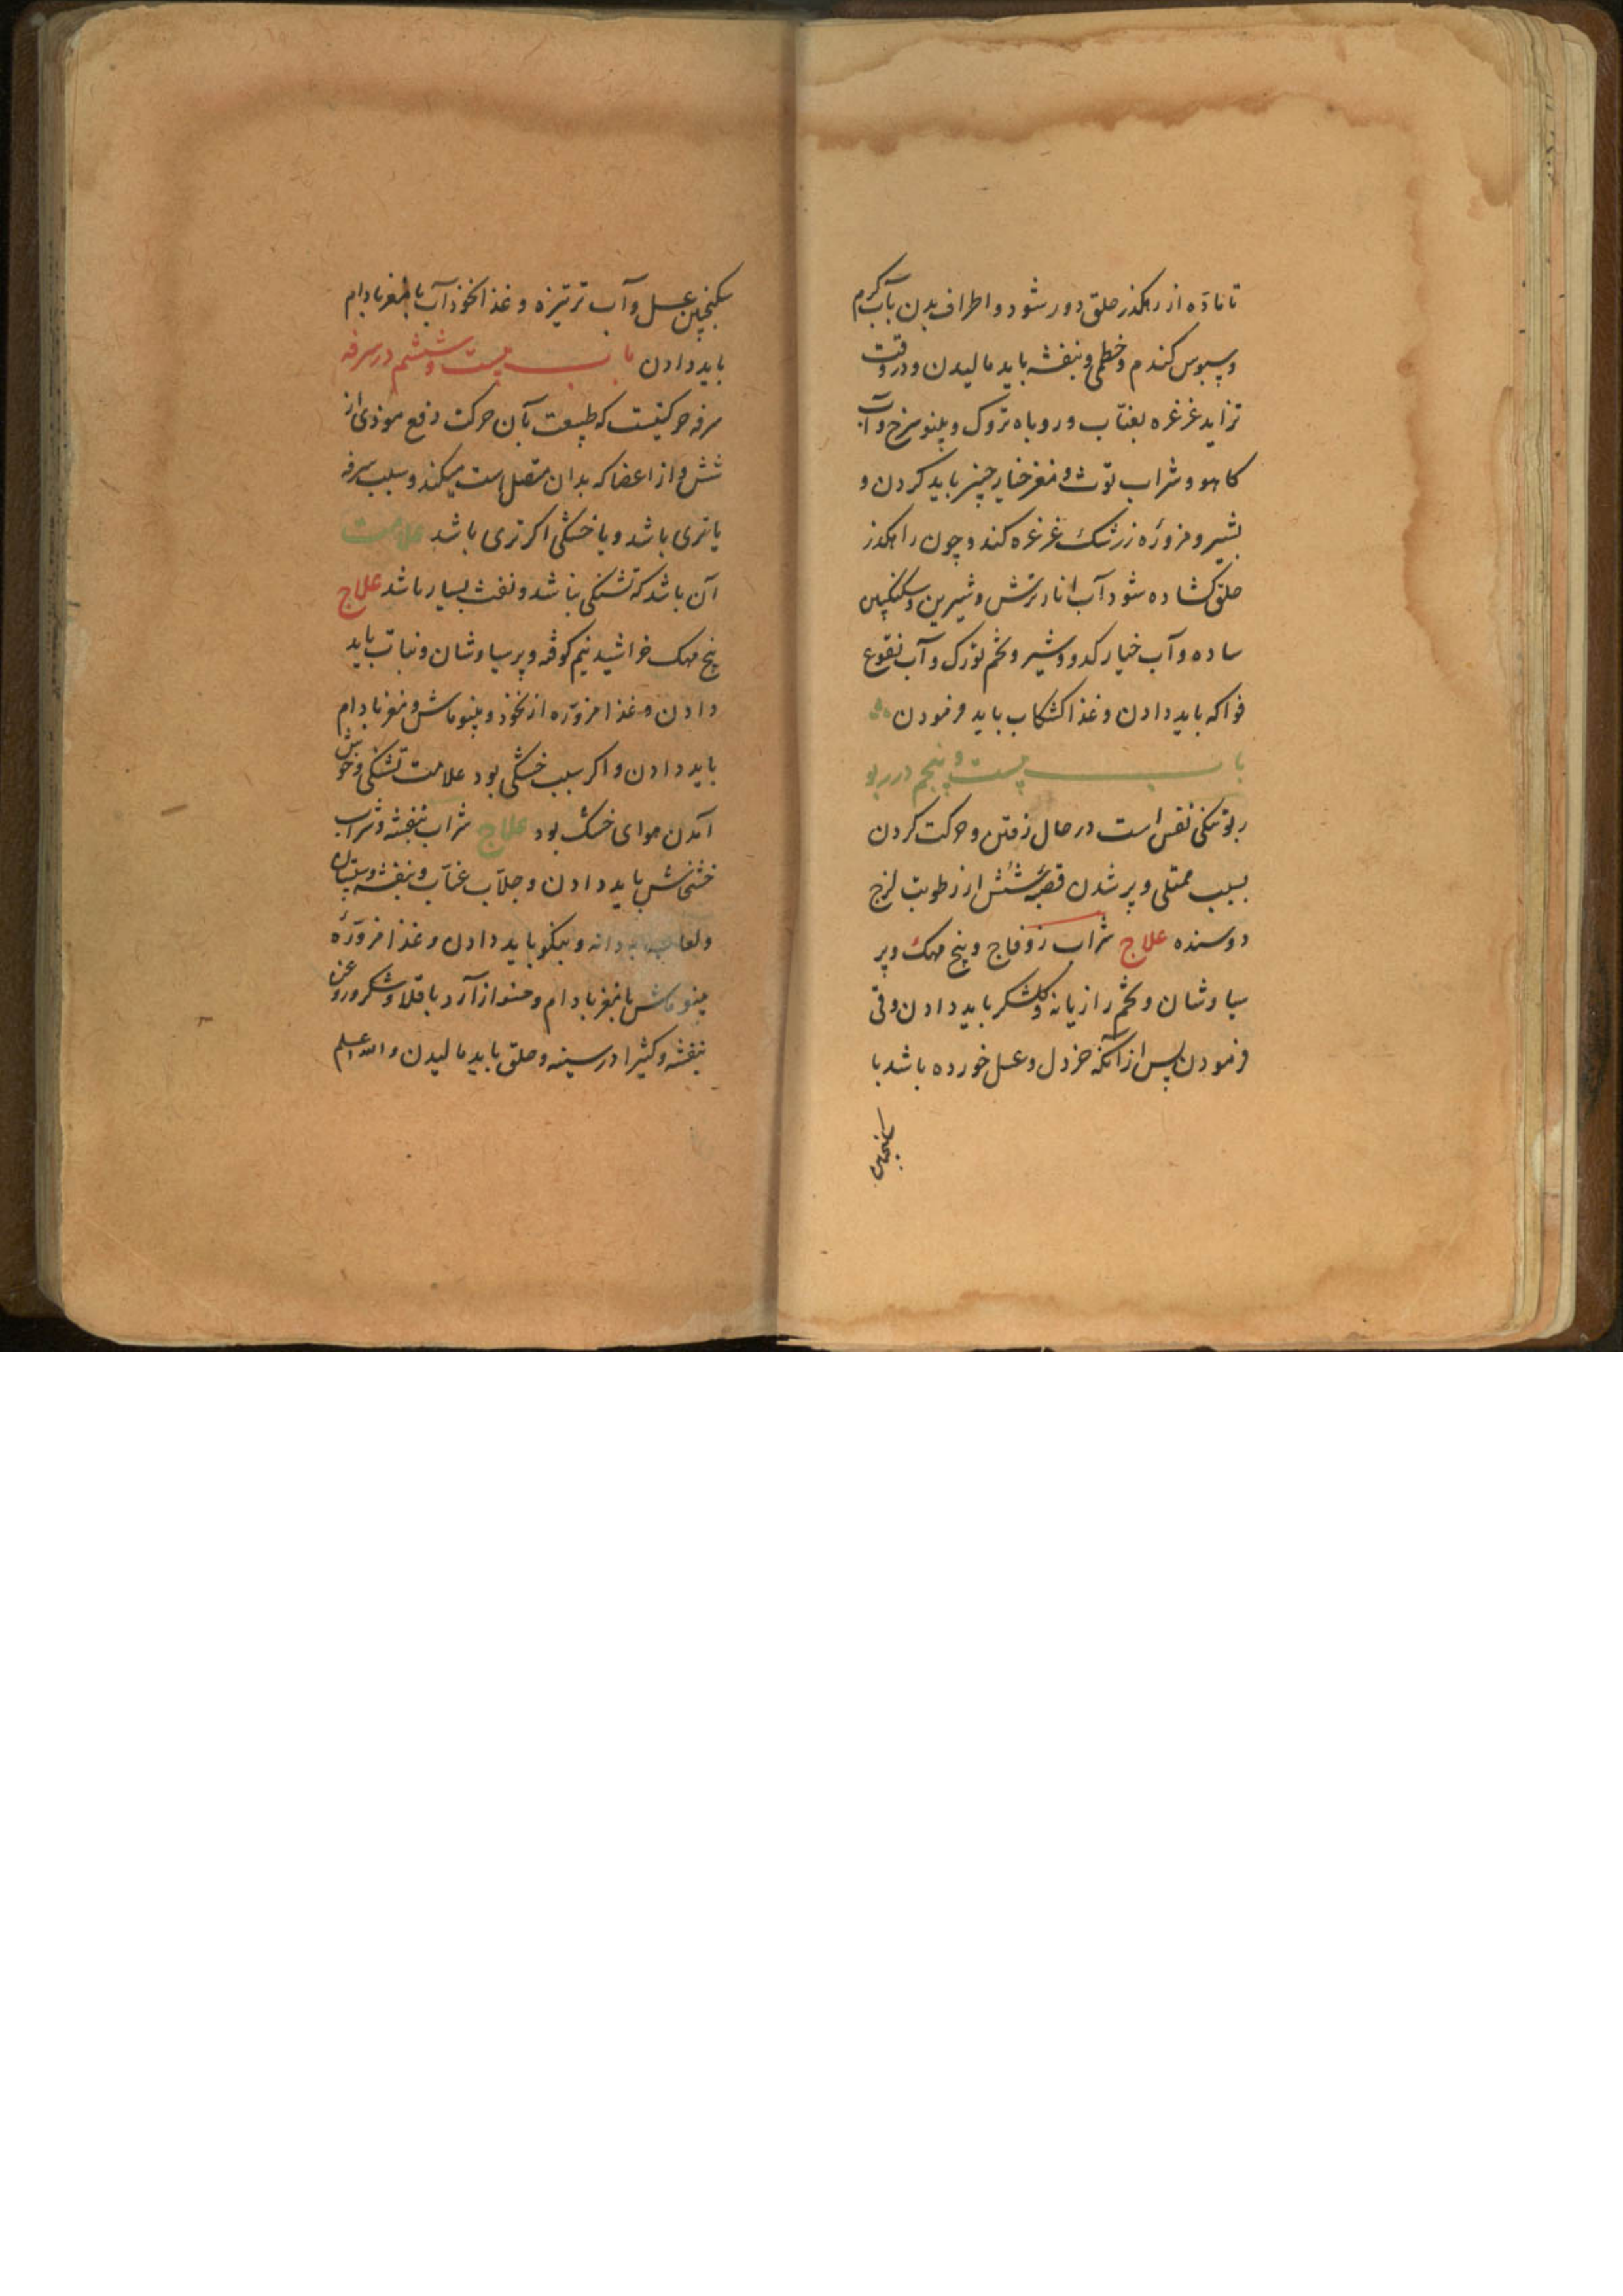 تا مادّه از رهکذر حلق دور شود و اطراف بدن بآب کرم
و سبوس کندم و خطمی و بنفشه باید مالیدن و در وقت
تزاید غرغره بعنّاب و روباه تروک و پنو سرخ و آب
کاهو و شراب توث و مغز خیار چنبر باید کردن و
بشیر و مزوّره زرشک غرغره کند و چون راهکذر
حلق کشاده شود آب انار ترش و شیرین و سکنکبین
ساده و آب خیار کدو و شیر و تخم تورک و آب نقوع
فواکه باید دادن و غذا کشکاب باید فرمودن
باب بیست و پنجم در ربو
ربو تنکی نفس است در حال رفتن و حرکت کردن
بسبب ممتلی و پر شدن قصبهٔ شش از رطوبت لزج
دوسنده علاج شراب زوفاج و پنج مهک و پر
سیاوشان و تخم رازیانه و کلشکر باید دادن و قی
فرمودن پس از آنکه خردل و عسل خورده باشد با
سکنجبین
سکنجبین عسل و آب ترتیزه و غذا نخوذ آب با مغز بادام
باید دادن باب بیست و ششم در سرفه
سرفه حرکتیست که طبیعت بآن حرکت دفع موذی از
شش و از اعضا که بدان متصل است میکند و سبب سرفه
یا تری باشد و یا خشکی اکر تری باشد علامت
آن باشد که تشنکی نباشد و نفث بسیار باشد علاج
پنج مهک خراشیده نیم کوفته و پر سیاوشان و نبات باید
دادن و غذا مزوّره از نخوذ و پنو ماش و مغز بادام
باید دادن و اکر سبب خشکی بود علامت تشنکی و خوش
آمدن هوای خشک بود علاج شراب بنفشه و شراب
خشخاش باید دادن و جلّاب عنّاب و بنفشه و سپستان
و لعاب دانه و بنکو باید دادن و غذا مزوّرهٔ
پنو ماش با مغز بادام و حسو از آرد باقلا و شکر و روغن
بنفشه و کثیرا در سینه و حلق باید مالیدن والله اعلم